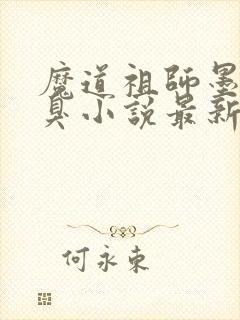 魔道祖師墨
臭小説最新
何永東